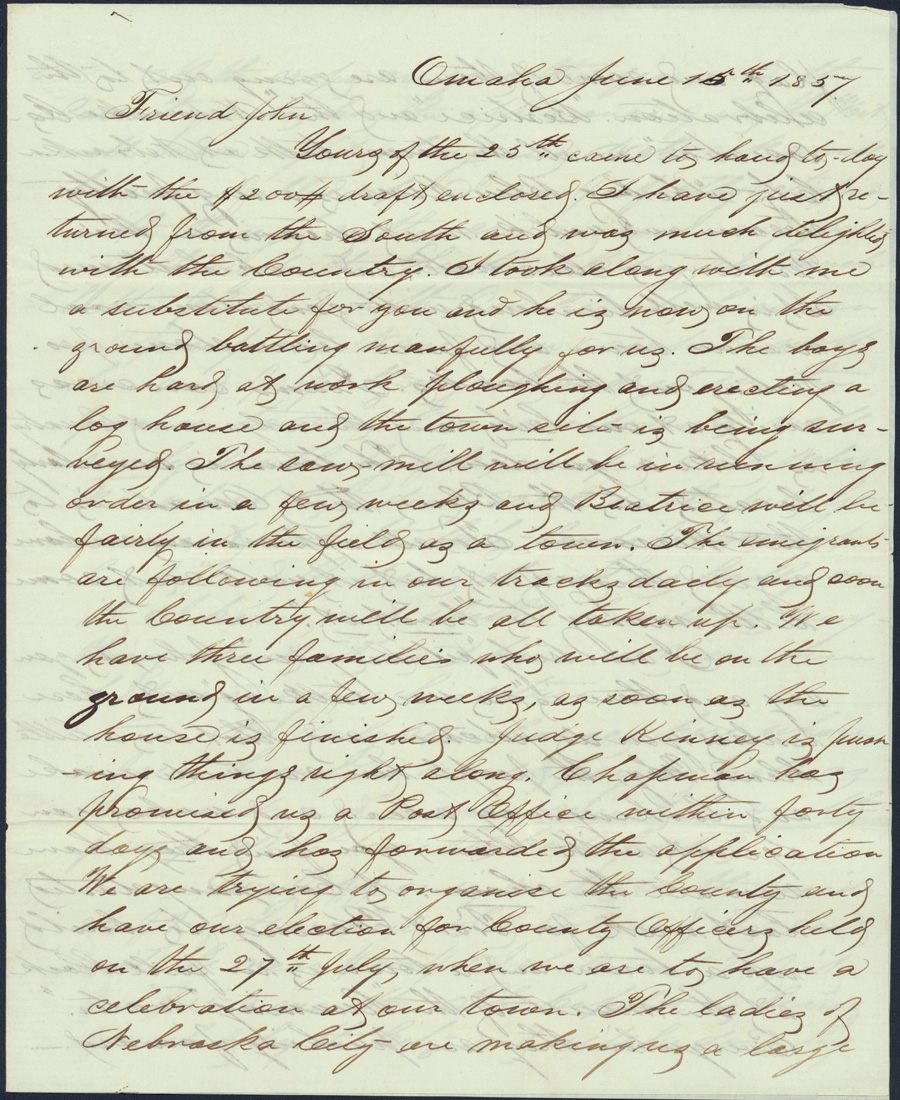 Omaha June 15th 1857
Friend John
Yours of the 25th came to hand to-day
with the $200 draft enclosed. I have just re-
turned from the South and was much delighted
with the Country. I took along with me
a substitute for you and he is now on the
ground battling manfully for us. The boys
are hard at work ploughing and erecting a
log house and the town site is being sur-
veyed. The saw-mill will be in running
order in a few weeks and Beatrice will be
fairly in the field as a town. The emigrants
are following in our tracks daily and soon
the Country will be all taken up. We
have three families who will be on the
ground in a few weeks, as soon as the
house is finished. Judge Kinney is push
-ing things right along. Chapman has
promised us a Post Office within forty
days and has forwarded the application
We are trying to organise the County and
have our election for County Officers held
on the 27th July, when we are to have a
celebration at our town. The ladies of
Nebraska City are making us a large